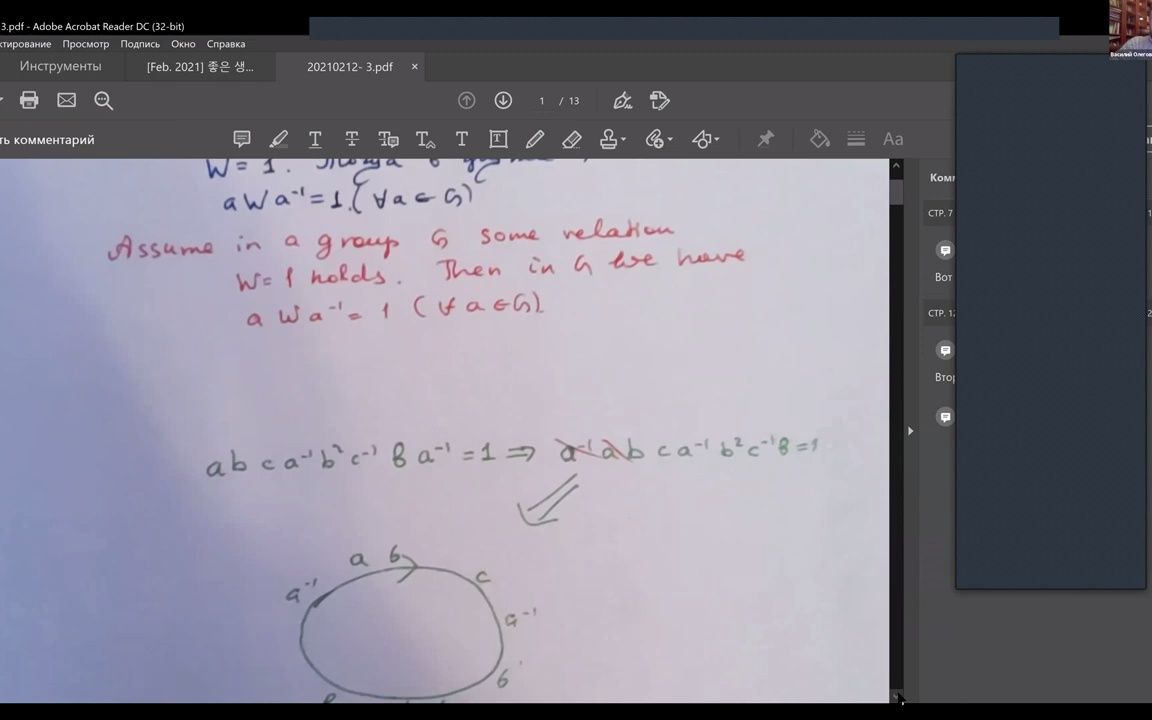 3.pdf - Adobe Acrobat Reader DC (32-bit)
ктирование Просмотр Подпись Окно Справка
Инструменты [Feb. 2021] 좋은 생... 20210212- 3.pdf ×
1 / 13
ть комментарий
Aa
Василий Олегов
W = 1. Тогда в
a W a⁻¹ = 1. (∀ a ∈ G)
Assume in a group G some relation
W = 1 holds. Then in G we have
a W a⁻¹ = 1 (∀ a ∈ G).
a b c a⁻¹ b² c⁻¹ b a⁻¹ = 1 ⇒ a⁻¹ a b c a⁻¹ b² c⁻¹ b = 1
a b
a⁻¹ c
a⁻¹
b
Комм
СТР. 7 1
Вот
СТР. 12 2
Втор